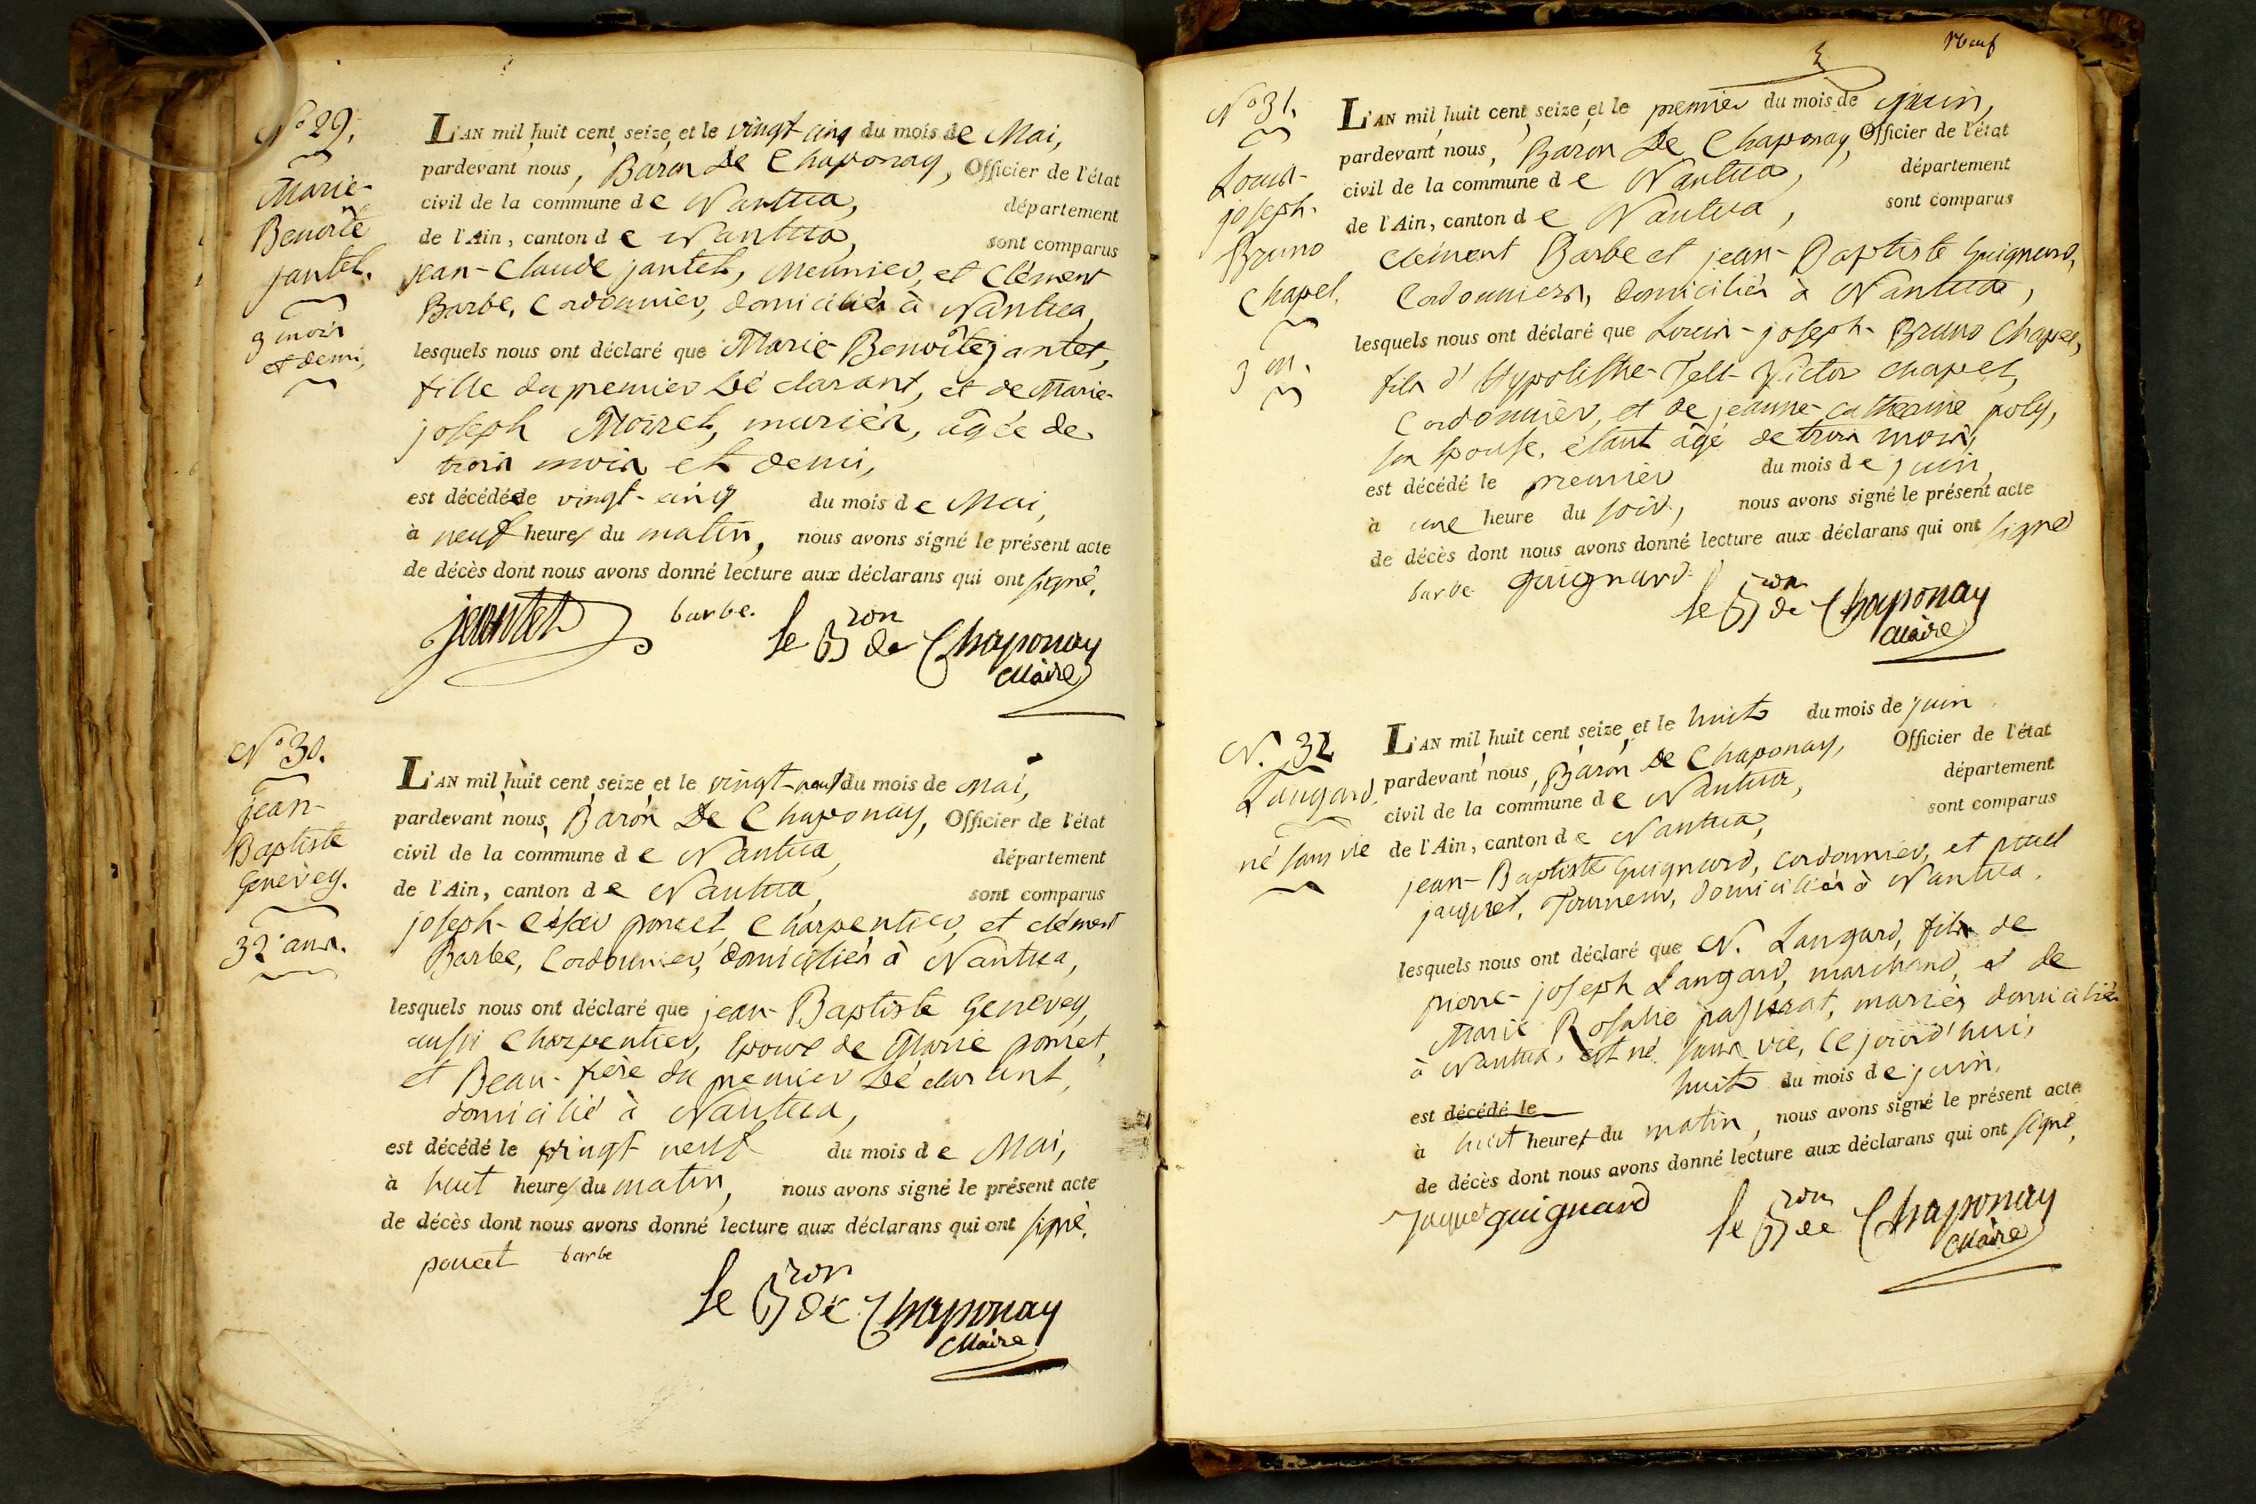 N° 29.
Marie-
Benoîte
jantet.
3 mois
et demi,
L'AN mil huit cent seize et le vingt cinq du mois de Mai,
pardevant nous, Baron De Chaponay, Officier de l'état
civil de la commune de Nantua, département
de l'Ain, canton de Nantua, sont comparus
jean-Claude jantet, Meunier, et Clément
Barbe, Cordonnier, domiciliés à Nantua,
lesquels nous ont déclaré que Marie-Benoîte jantet,
fille du premier Déclarant, et de Marie-
joseph Moiret, mariés, âgée de
trois mois et demi,
est décédée le vingt-cinq du mois de Mai,
à neuf heures du matin, nous avons signé le présent acte
de décès dont nous avons donné lecture aux déclarans qui ont signé.
jeantet barbe. le Bron de Chaponay
Maire
N° 30.
jean-
Baptiste
Genevey.
32 ans.
L'AN mil huit cent seize et le vingt-neuf du mois de Mai,
pardevant nous, Baron De Chaponay, Officier de l'état
civil de la commune de Nantua, département
de l'Ain, canton de Nantua, sont comparus
joseph-César poncet, Charpentier, et clément
Barbe, Cordonnier, domiciliés à Nantua,
lesquels nous ont déclaré que jean-Baptiste Genevey,
aussi Charpentier, Epoux de Marie poncet,
et Beau-frère du premier Déclarant,
domicilié à Nantua,
est décédé le vingt neuf du mois de Mai,
à huit heures du matin, nous avons signé le présent acte
de décès dont nous avons donné lecture aux déclarans qui ont signé.
poncet barbe
le Bron de Chaponay
Maire
Neuf
N° 31.
Louis-
joseph-
Bruno
Chapel.
3 m.
L'AN mil huit cent seize et le premier du mois de juin,
pardevant nous, Baron De Chaponay, Officier de l'état
civil de la commune de Nantua, département
de l'Ain, canton de Nantua, sont comparus
clément Barbe et jean-Baptiste Guignard,
Cordonniers, domiciliés à Nantua,
lesquels nous ont déclaré que Louis-joseph-Bruno Chapel,
fils d'Hypolithe- Victor Chapel,
Cordonnier, et de jeanne-catherine poly,
son Epouse, étant âgé de trois mois,
est décédé le premier du mois de juin,
à une heure du soir, nous avons signé le présent acte
de décès dont nous avons donné lecture aux déclarans qui ont signé
barbe guignard
le Bron de Chaponay
Maire
N. 32
Langard,
né sans vie
L'AN mil huit cent seize et le huit du mois de juin
pardevant nous, Baron De Chaponay, Officier de l'état
civil de la commune de Nantua, département
de l'Ain, canton de Nantua, sont comparus
jean-Baptiste Guignard, Cordonnier, et
jacquet, Tourneur, domiciliés à Nantua.
lesquels nous ont déclaré que N. Langard, fils de
pierre-joseph Langard, marchand, et de
Marie Rosalie passerat, mariés, domiciliés
à Nantua, est né sans vie, Ce jourd'hui,
est décédé le huit du mois de juin,
à huit heures du matin, nous avons signé le présent acte
de décès dont nous avons donné lecture aux déclarans qui ont signé,
Jaquet guignard
le Bron de Chaponay
Maire